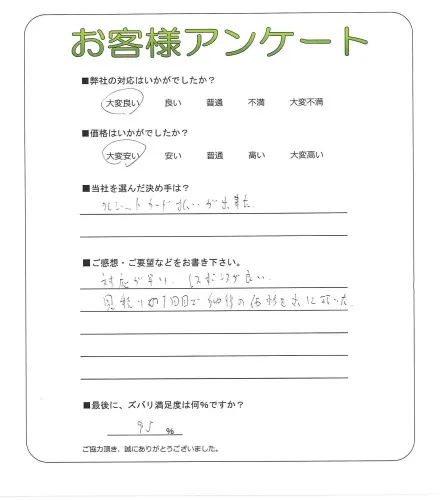 お客様アンケート
■弊社の対応はいかがでしたか?
大変良い 良い 普通 不満 大変不満
■価格はいかがでしたか?
大変安い 安い 普通 高い 大変高い
■当社を選んだ決め手は?
クレジットカード払いが出来た
■ご感想・ご要望などをお書き下さい。
対応が早い、レスポンスが良い
見積りの1回目で納得の価格を出して
■最後に、ズバリ満足度は何%ですか?
95 %
ご協力頂き、誠にありがとうございました。